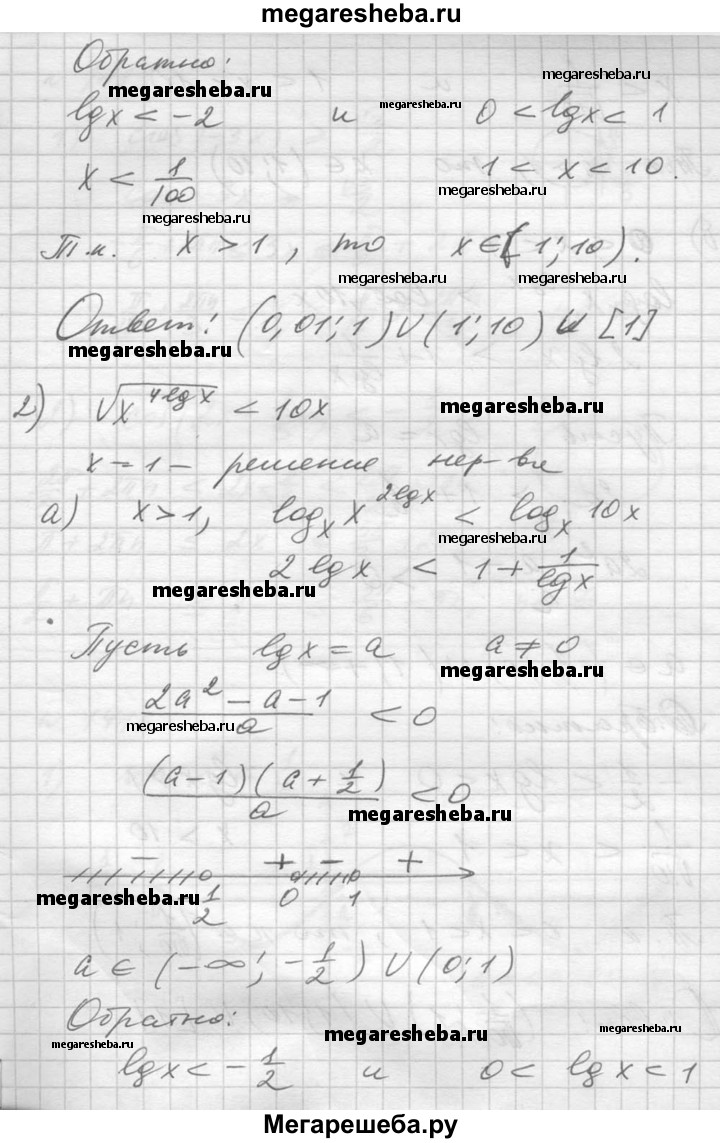 megaresheba.ru
Обратно:
megaresheba.ru
megaresheba.ru
lg x < -2 и 0 < lg x < 1
megaresheba.ru
x < 1/100 1 < x < 10.
megaresheba.ru
megaresheba.ru
Т.к. x > 1, то x ∈ (1; 10).
megaresheba.ru
megaresheba.ru
Ответ: (0,01; 1) U (1; 10) U [1]
megaresheba.ru
2) √x^(4lg x) < 10x
megaresheba.ru
x = 1 - решение нер-ве
а) x > 1, log_x x^(2lg x) < log_x 10x
megaresheba.ru
2 lg x < 1 + 1/lg x
megaresheba.ru
Пусть lg x = a a ≠ 0
megaresheba.ru
(2a² - a - 1)/a < 0
megaresheba.ru
(a - 1)(a + 1/2)/a < 0
megaresheba.ru
- + - +
megaresheba.ru
1/2 0 1
a ∈ (-∞; -1/2) U (0; 1)
Обратно:
megaresheba.ru
megaresheba.ru
megaresheba.ru
lg x < -1/2 и 0 < lg x < 1
Мегарешеба.ру